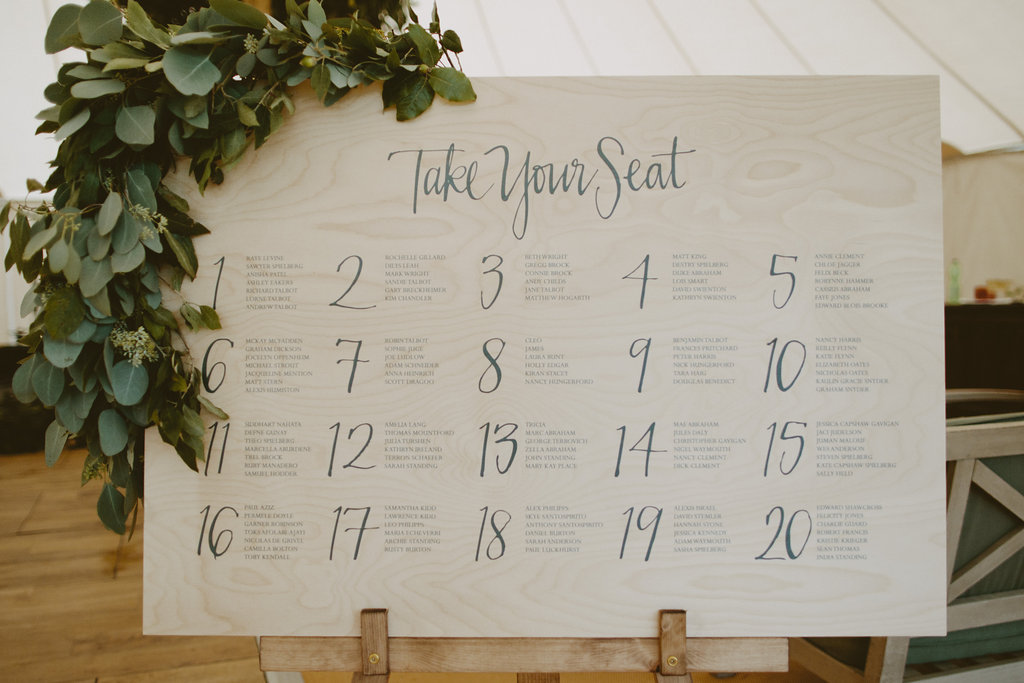 Take Your Seat
1
RAFE LEVINE
SAWYER SPIELBERG
ANISHA PATEL
ASHLEY EAKERS
RICHARD TALBOT
LORNE TALBOT
ANDREW TALBOT
2
ROCHELLE GILLARD
DILYS LEAH
MARK WRIGHT
SANDIE TALBOT
GARY BRECKHEIMER
KIM CHANDLER
3
BETH WRIGHT
GREGG BROCK
CONNIE BROCK
ANDY CHILDS
JANE TALBOT
MATTHEW HOGARTH
4
MATT KING
DESTRY SPIELBERG
DUKE ABRAHAM
LOIS SMART
DAVID SWIENTON
KATHRYN SWIENTON
5
ANNIE CLEMENT
CHLOE JAGGER
FELIX BECK
RORYENNE HAMMER
CASSIUS ABRAHAM
FAYE JONES
EDWARD BLOIS-BROOKE
6
MCKAY MCFADDEN
GRAHAM DICKSON
JOCELYN OPPENHEIM
MICHAEL STROUT
JACQUELINE MENTION
MATT STERN
ALEXIS HUMISTON
7
ROBIN TALBOT
SOPHIE JUGE
JOE LUDLOW
ADAM SCHNEIDER
ANNA HEINRICH
SCOTT DRAGOO
8
CLEO
JAMES
LAURA BUNT
HOLLY EDGAR
KIRAN STACEY
NANCY HUNGERFORD
9
BENJAMIN TALBOT
FRANCES PRITCHARD
PETER HARRIS
NICK HUNGERFORD
TARA HAIG
DOUGLAS BENEDICT
10
NANCY HARRIS
REILLY FLYNN
KATE FLYNN
ELIZABETH OATES
NICHOLAS OATES
KAULIN GRACIE SNYDER
GRAHAM SNYDER
11
SIDDHART NAHATA
DEFNE GUNAY
THEO SPIELBERG
MARCELLA ABURDENE
TREL BROCK
RUBY MANADERO
SAMUEL HODDER
12
AMELIA LANG
THOMAS MOUNTFORD
JULIA TURSHEN
KATHRYN IRELAND
TERRON SCHAEFER
SARAH STANDING
13
TRICIA
MARC ABRAHAM
GEORGE TERBOVICH
ZELLA ABRAHAM
JOHN STANDING
MARY KAY PLACE
14
MAE ABRAHAM
JULES DALY
CHRISTOPHER GAVIGAN
NIGEL WAYMOUTH
NANCY CLEMENT
DICK CLEMENT
15
JESSICA CAPSHAW GAVIGAN
JACI JUDELSON
JUMAN MALOUF
WES ANDERSON
STEVEN SPIELBERG
KATE CAPSHAW SPIELBERG
SALLY FIELD
16
PAUL AZIZ
DOYLE
GARNER ROBINSON
TOKS AFOLABI AJAYI
NICOLAS DE
CAMILLA BOLTON
TOBY KENDALL
17
SAMANTHA KIDD
LAWRENCE KIDD
LEO PHILIPPS
MARIA ECHEVERRI
ARCHIE STANDING
RUSTY BURTON
18
ALEX PHILIPPS
SKYE SANTOSPIRITO
ANTHONY SANTOSPIRITO
DANIEL BURTON
SARAH ANDERSON
PAUL LUCKHURST
19
ALEXIS ISRAEL
DAVID STEMLER
HANNAH STONE
JESSICA KENNEDY
ADAM WAYMOUTH
SASHA SPIELBERG
20
EDWARD SHAWCROSS
FELICITY JONES
CHARLIE GUARD
ROBERT FRANCIS
KRISTIE KRIEGER
SEAN THOMAS
INDIA STANDING